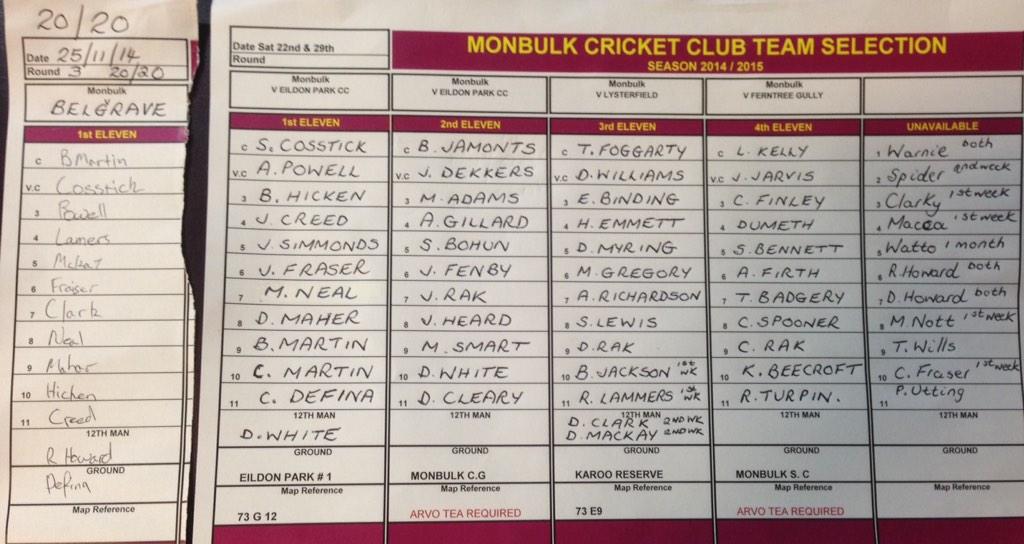 20/20
Date 25/11/14
Round 3 20/20
Monbulk
BELGRAVE
1st ELEVEN
C B Martin
V.C Cosstick
3 Powell
4 Lamers
5
6 Fraiser
7 Clark
8 Neal
9 Mahar
10 Hicken
11 Creed
12TH MAN
R Howard
GROUND
Defina
Map Reference
Date Sat 22nd & 29th
Round
MONBULK CRICKET CLUB TEAM SELECTION
SEASON 2014 / 2015
Monbulk
V EILDON PARK CC
1st ELEVEN
C S. COSSTICK
V.C A. POWELL
3 B. HICKEN
4 J. CREED
5 J. SIMMONDS
6 J. FRASER
7 M. NEAL
8 D. MAHER
9 B. MARTIN
10 C. MARTIN
11 C. DEFINA
12TH MAN
D. WHITE
GROUND
EILDON PARK # 1
Map Reference
73 G 12
Monbulk
V EILDON PARK CC
2nd ELEVEN
C B. JAMONTS
V.C J. DEKKERS
3 M. ADAMS
4 A. GILLARD
5 S. BOHUN
6 J. FENBY
7 J. RAK
8 J. HEARD
9 M. SMART
10 D. WHITE
11 D. CLEARY
12TH MAN
GROUND
MONBULK C.G
Map Reference
ARVO TEA REQUIRED
Monbulk
V LYSTERFIELD
3rd ELEVEN
C T. FOGGARTY
V.C D. WILLIAMS
3 E. BINDING
4 H. EMMETT
5 D. MYRING
6 M. GREGORY
7 A. RICHARDSON
8 S. LEWIS
9 D. RAK
10 B. JACKSON 1st WK
11 R. LAMMERS 1st WK
12TH MAN
D. CLARK 2ND WK
D. MACKAY 2ND WK
GROUND
KAROO RESERVE
Map Reference
73 E9
Monbulk
V FERNTREE GULLY
4th ELEVEN
C L. KELLY
V.C J. JARVIS
3 C. FINLEY
4 DUMETH
5 S. BENNETT
6 A. FIRTH
7 T. BADGERY
8 C. SPOONER
9 C. RAK
10 K. BEECROFT
11 R. TURPIN.
12TH MAN
GROUND
MONBULK S. C
Map Reference
ARVO TEA REQUIRED
UNAVAILABLE
1 Warnie both
2 Spider 2nd week
3 Clarky 1st week
4 Macca 1st week
5 Watto 1 month
6 R. Howard both
7 D. Howard both
8 M. Nott 1st week
9 T. Wills
10 C. Fraser 1st week
11 P. Utting
12TH MAN
GROUND
Map Reference